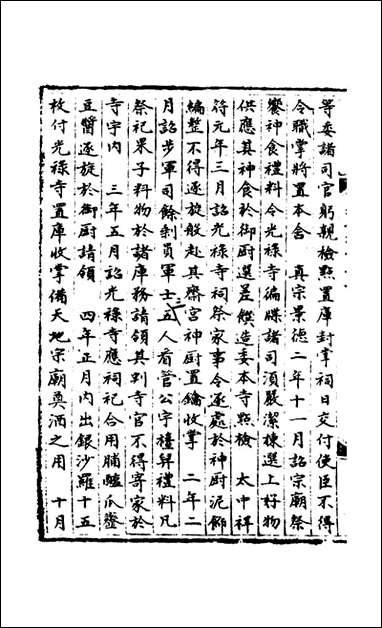 等委諸司官躬親檢㸃置庫封掌祠日交付使臣不得
令職掌將置本舍　真宗景徳二年十一月詔宗廟祭
饗神食禮料令光禄寺徧牒諸司須嚴潔棟選上好物
供應其神食於御厨選差饌造委本寺㸃檢　太中祥
符元年三月詔光禄寺祠祭家事令逐處於神厨泥飾
編整不得逐旋般赴其齋宫神厨置鏁收掌　二年二
月詔步軍司餘剰員軍士五人看管公宇檯舁禮料凡
祭祀果子料物於諸庫務請領其判寺官不得寄家於
寺宇内　三年五月詔光禄寺應祠祀合用脯鱐瓜虀
豆醬逐旋於御厨請領　四年正月内出銀沙羅十五
枚付光禄寺置庫收掌備天地宗廟奠洒之用　十月